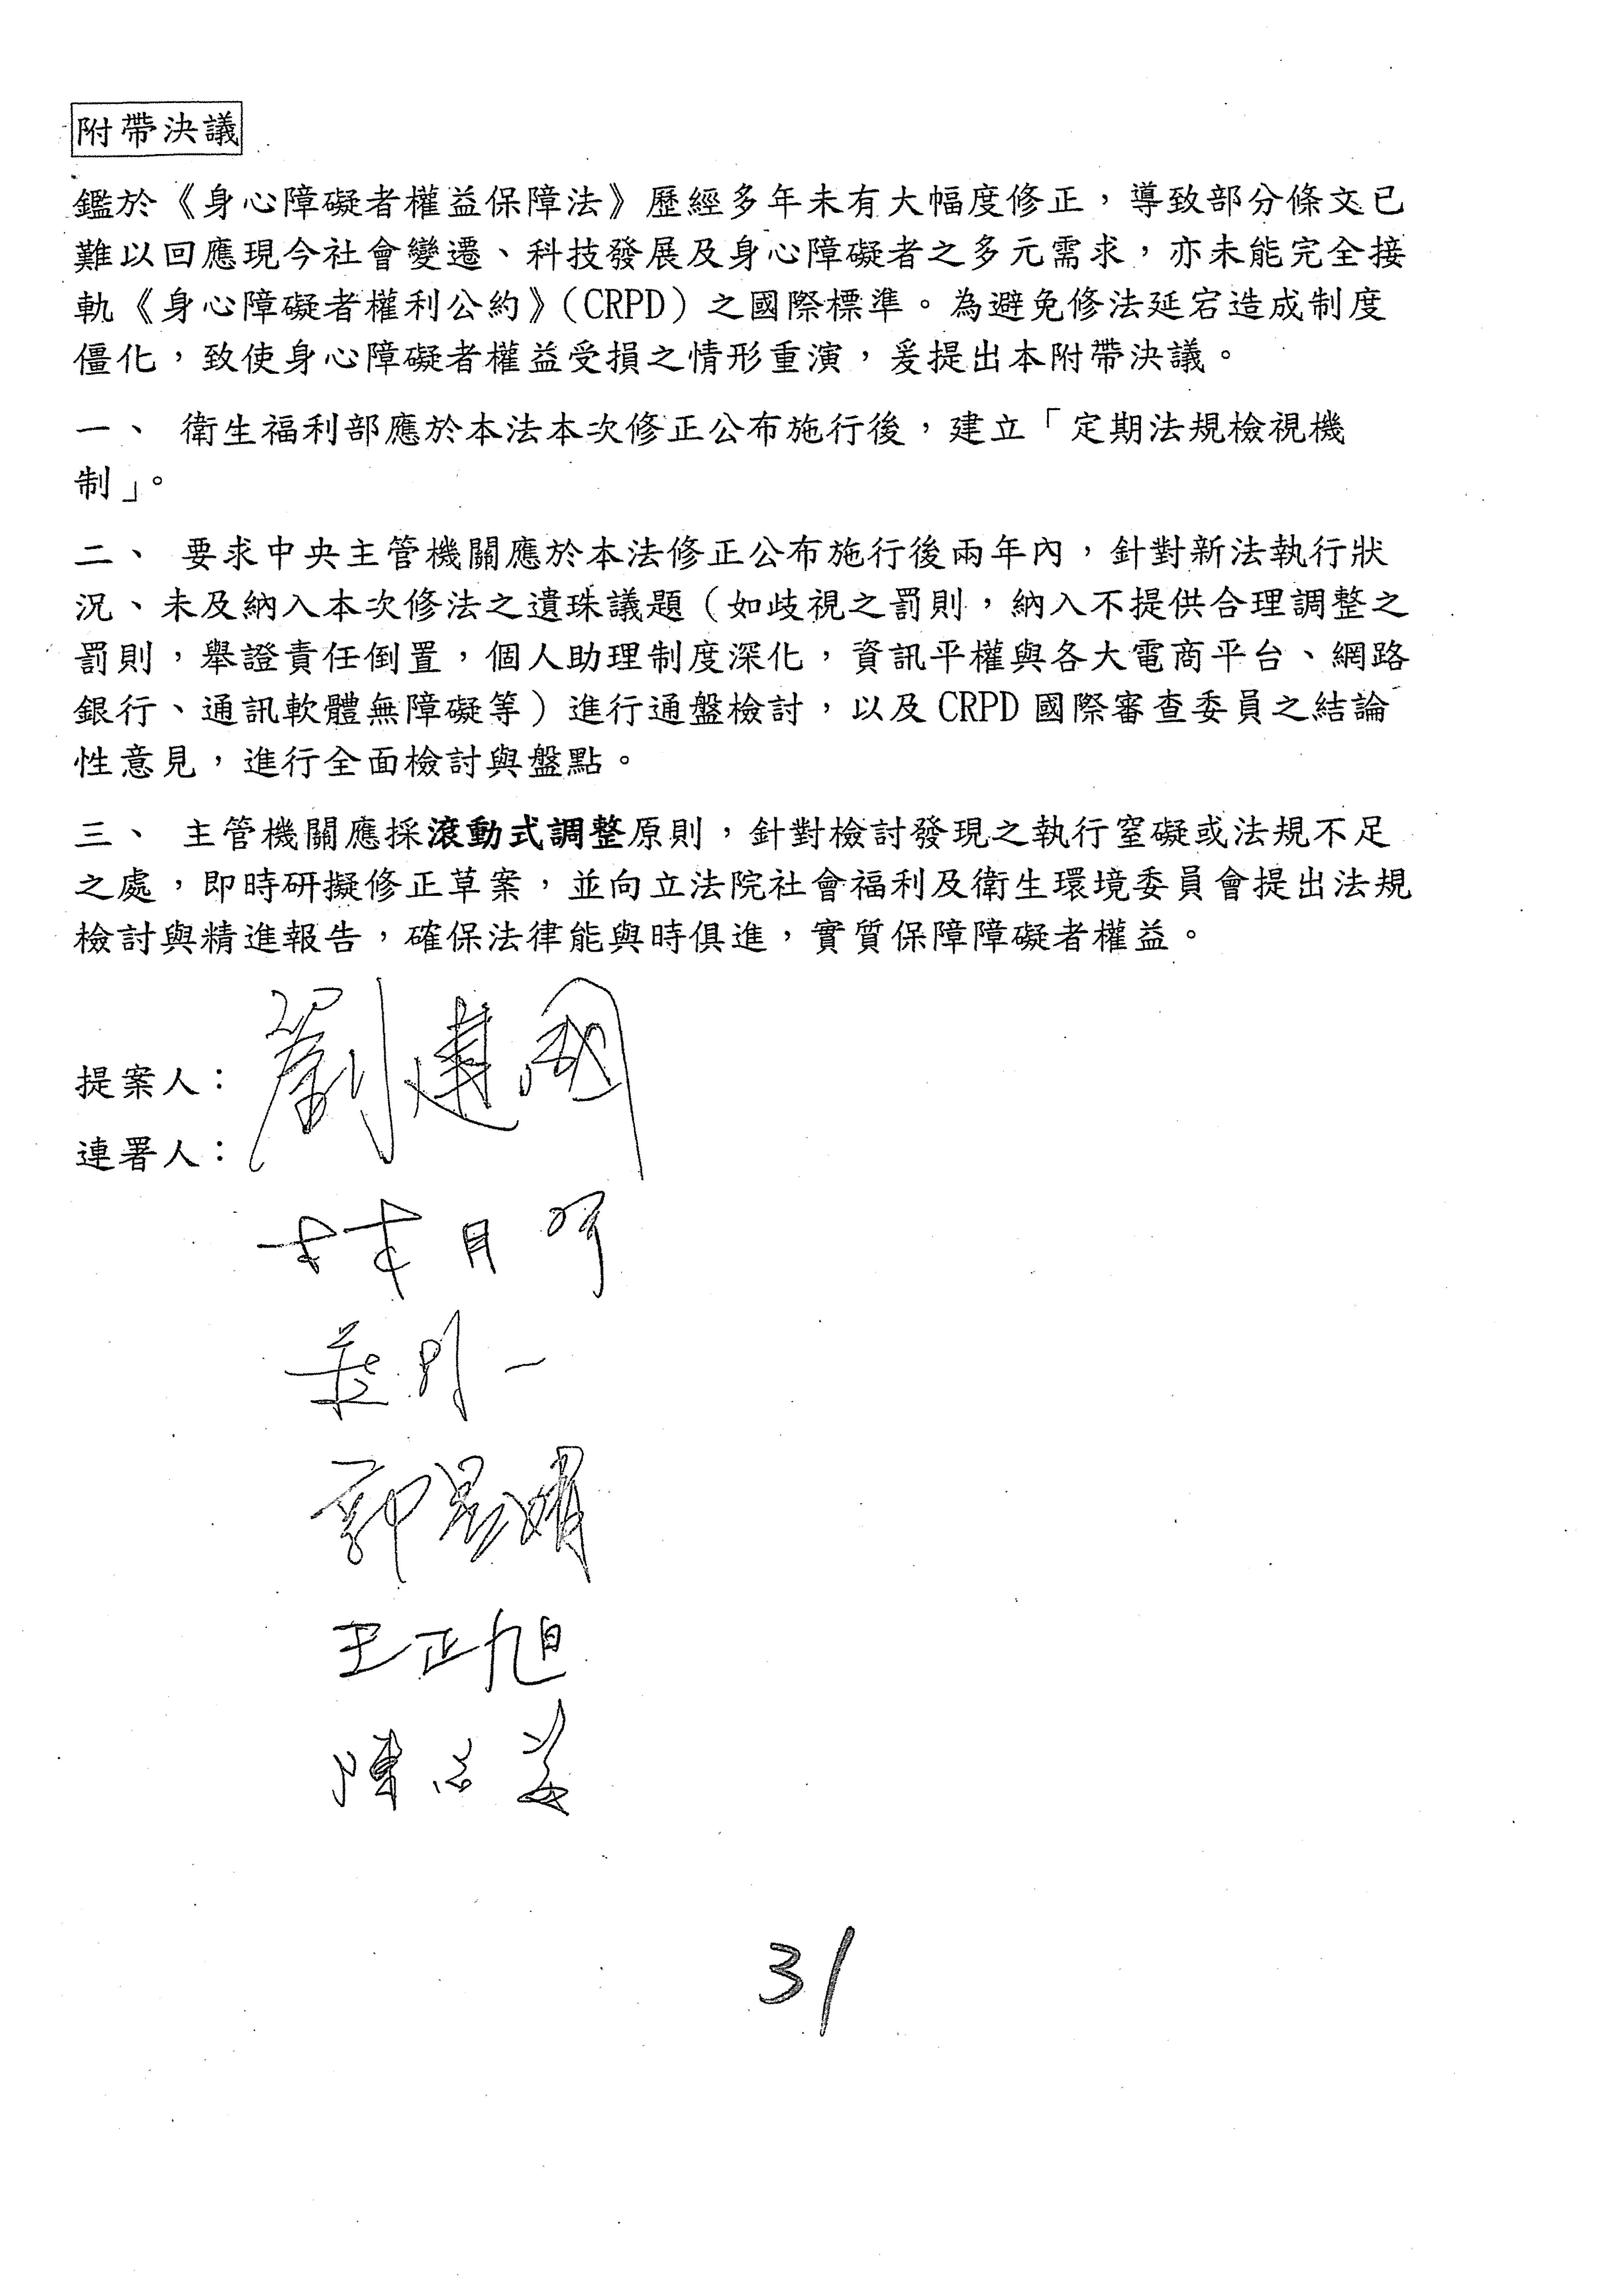 附帶決議
鑑於《身心障礙者權益保障法》歷經多年未有大幅度修正，導致部分條文已
難以回應現今社會變遷、科技發展及身心障礙者之多元需求，亦未能完全接
軌《身心障礙者權利公約》（CRPD）之國際標準。為避免修法延宕造成制度
僵化，致使身心障礙者權益受損之情形重演，爰提出本附帶決議。
一、 衛生福利部應於本法本次修正公布施行後，建立「定期法規檢視機
制」。
二、 要求中央主管機關應於本法修正公布施行後兩年內，針對新法執行狀
況、未及納入本次修法之遺珠議題（如歧視之罰則，納入不提供合理調整之
罰則，舉證責任倒置，個人助理制度深化，資訊平權與各大電商平台、網路
銀行、通訊軟體無障礙等）進行通盤檢討，以及 CRPD 國際審查委員之結論
性意見，進行全面檢討與盤點。
三、 主管機關應採滾動式調整原則，針對檢討發現之執行窒礙或法規不足
之處，即時研擬修正草案，並向立法院社會福利及衛生環境委員會提出法規
檢討與精進報告，確保法律能與時俱進，實質保障障礙者權益。
提案人：劉建國
連署人：
王正旭
31